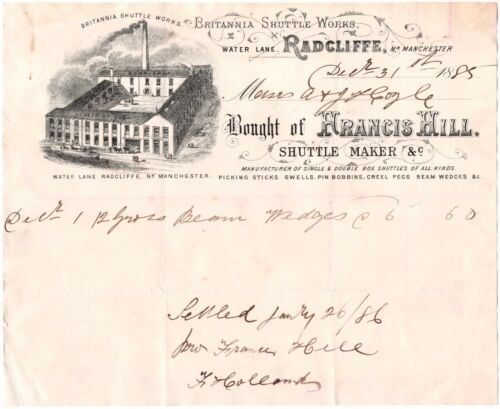 BRITANNIA SHUTTLE WORKS.
BRITANNIA SHUTTLE WORKS,
WATER LANE, RADCLIFFE, Nr MANCHESTER
Decr 31st 1885
Messrs A & J Hoyle
Bought of FRANCIS HILL.
SHUTTLE MAKER &c
MANUFACTURER OF SINGLE & DOUBLE BOX SHUTTLES OF ALL KINDS.
PICKING STICKS SWELLS, PIN BOBBINS, CREEL PEGS BEAM WEDGES &c.
WATER LANE RADCLIFFE, Nr MANCHESTER.
Decr 1 Gross Beam Wedges @ 6 6 0
Settled Jany 26/86
Francis Hill
F Holland